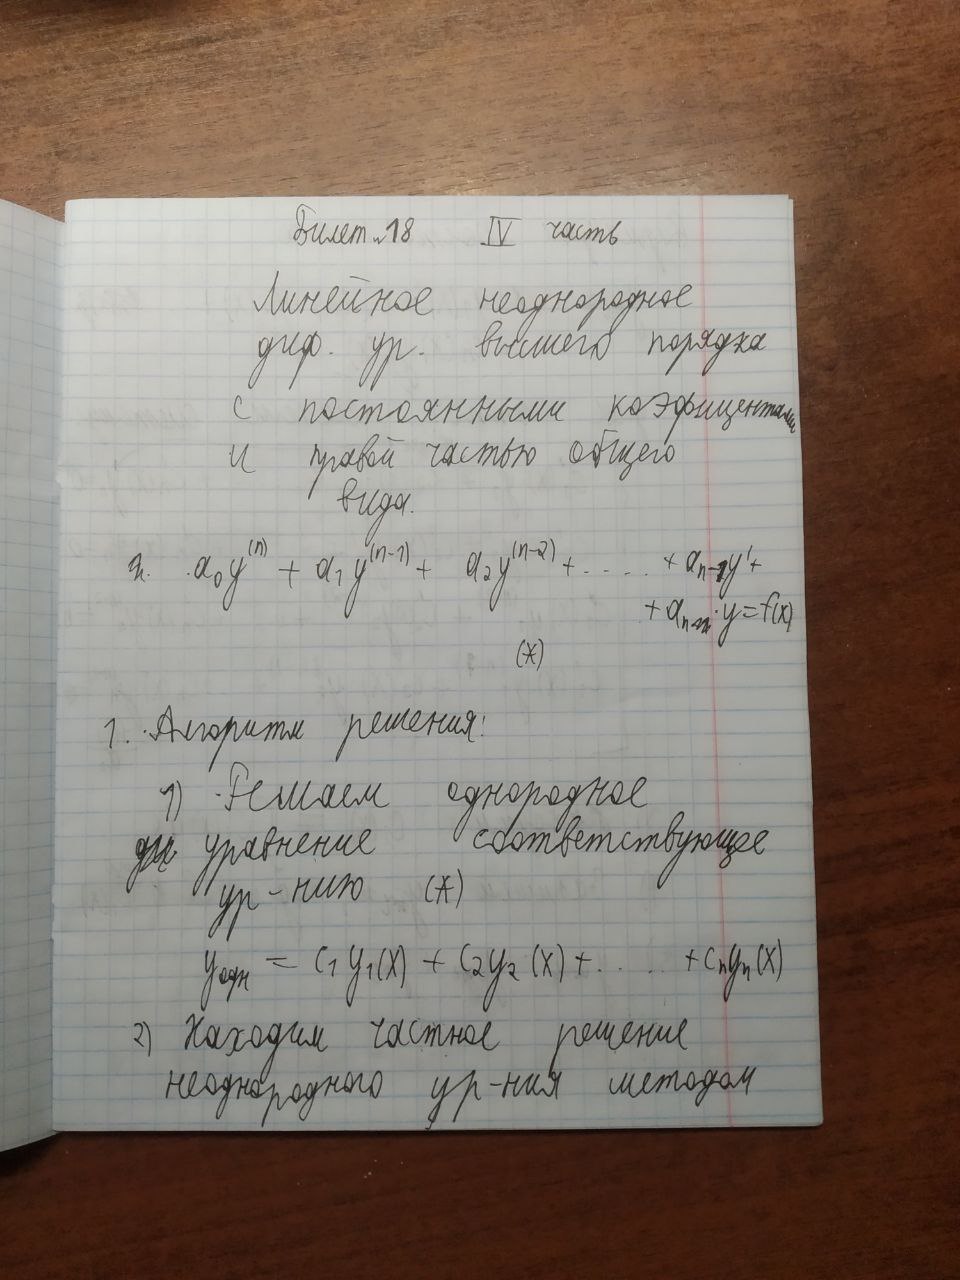 Билет №18 IV часть
Линейное неоднородное
диф. ур. высшего порядка
с постоянными коэфицентами
и правой частью общего
вида.
a₀y⁽ⁿ⁾ + a₁y⁽ⁿ⁻¹⁾ + a₂y⁽ⁿ⁻²⁾ + ..... + aₙ₋₁y' +
+ aₙ·y = f(x)
(*)
1. Алгоритм решения:
1) Решаем однородное
уравнение соответствующее
ур-нию (*)
yодн = C₁y₁(x) + C₂y₂(x) + ..... + Cₙyₙ(x)
2) Находим частное решение
неоднородного ур-ния методом